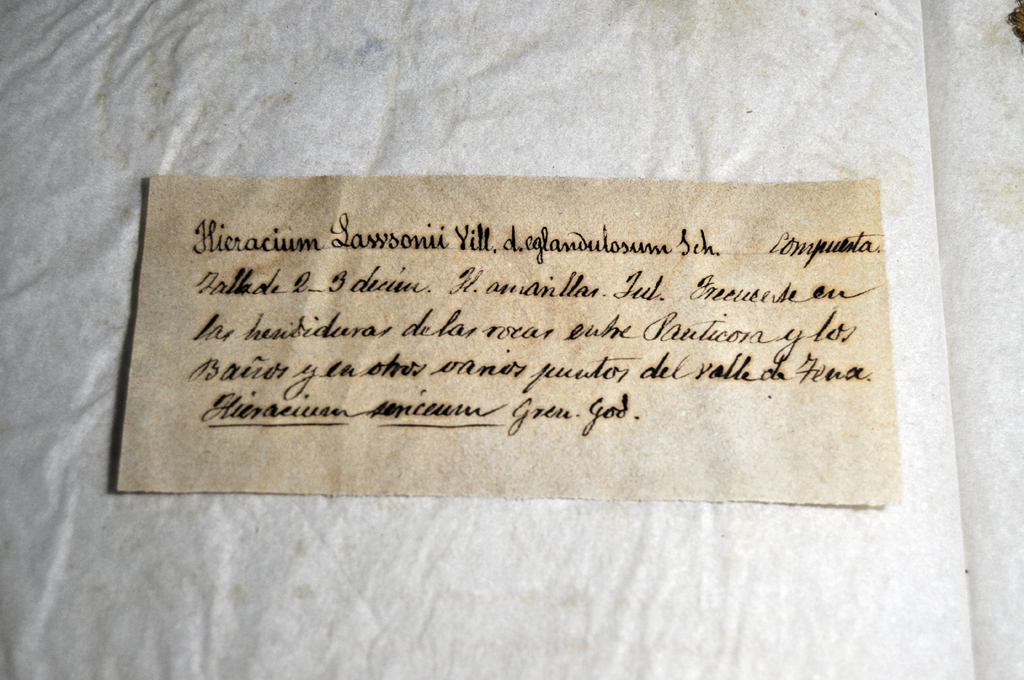 Hieracium Lawsonii Vill. d. eglandulosum Sch. Compuesta.
Talla de 2-3 decím. Fl. amarillas. Jul. Frecuente en
las hendiduras de las rocas entre Panticosa y los
Baños y en otros varios puntos del valle de Tena.
Hieracium sericeum Gren. God.